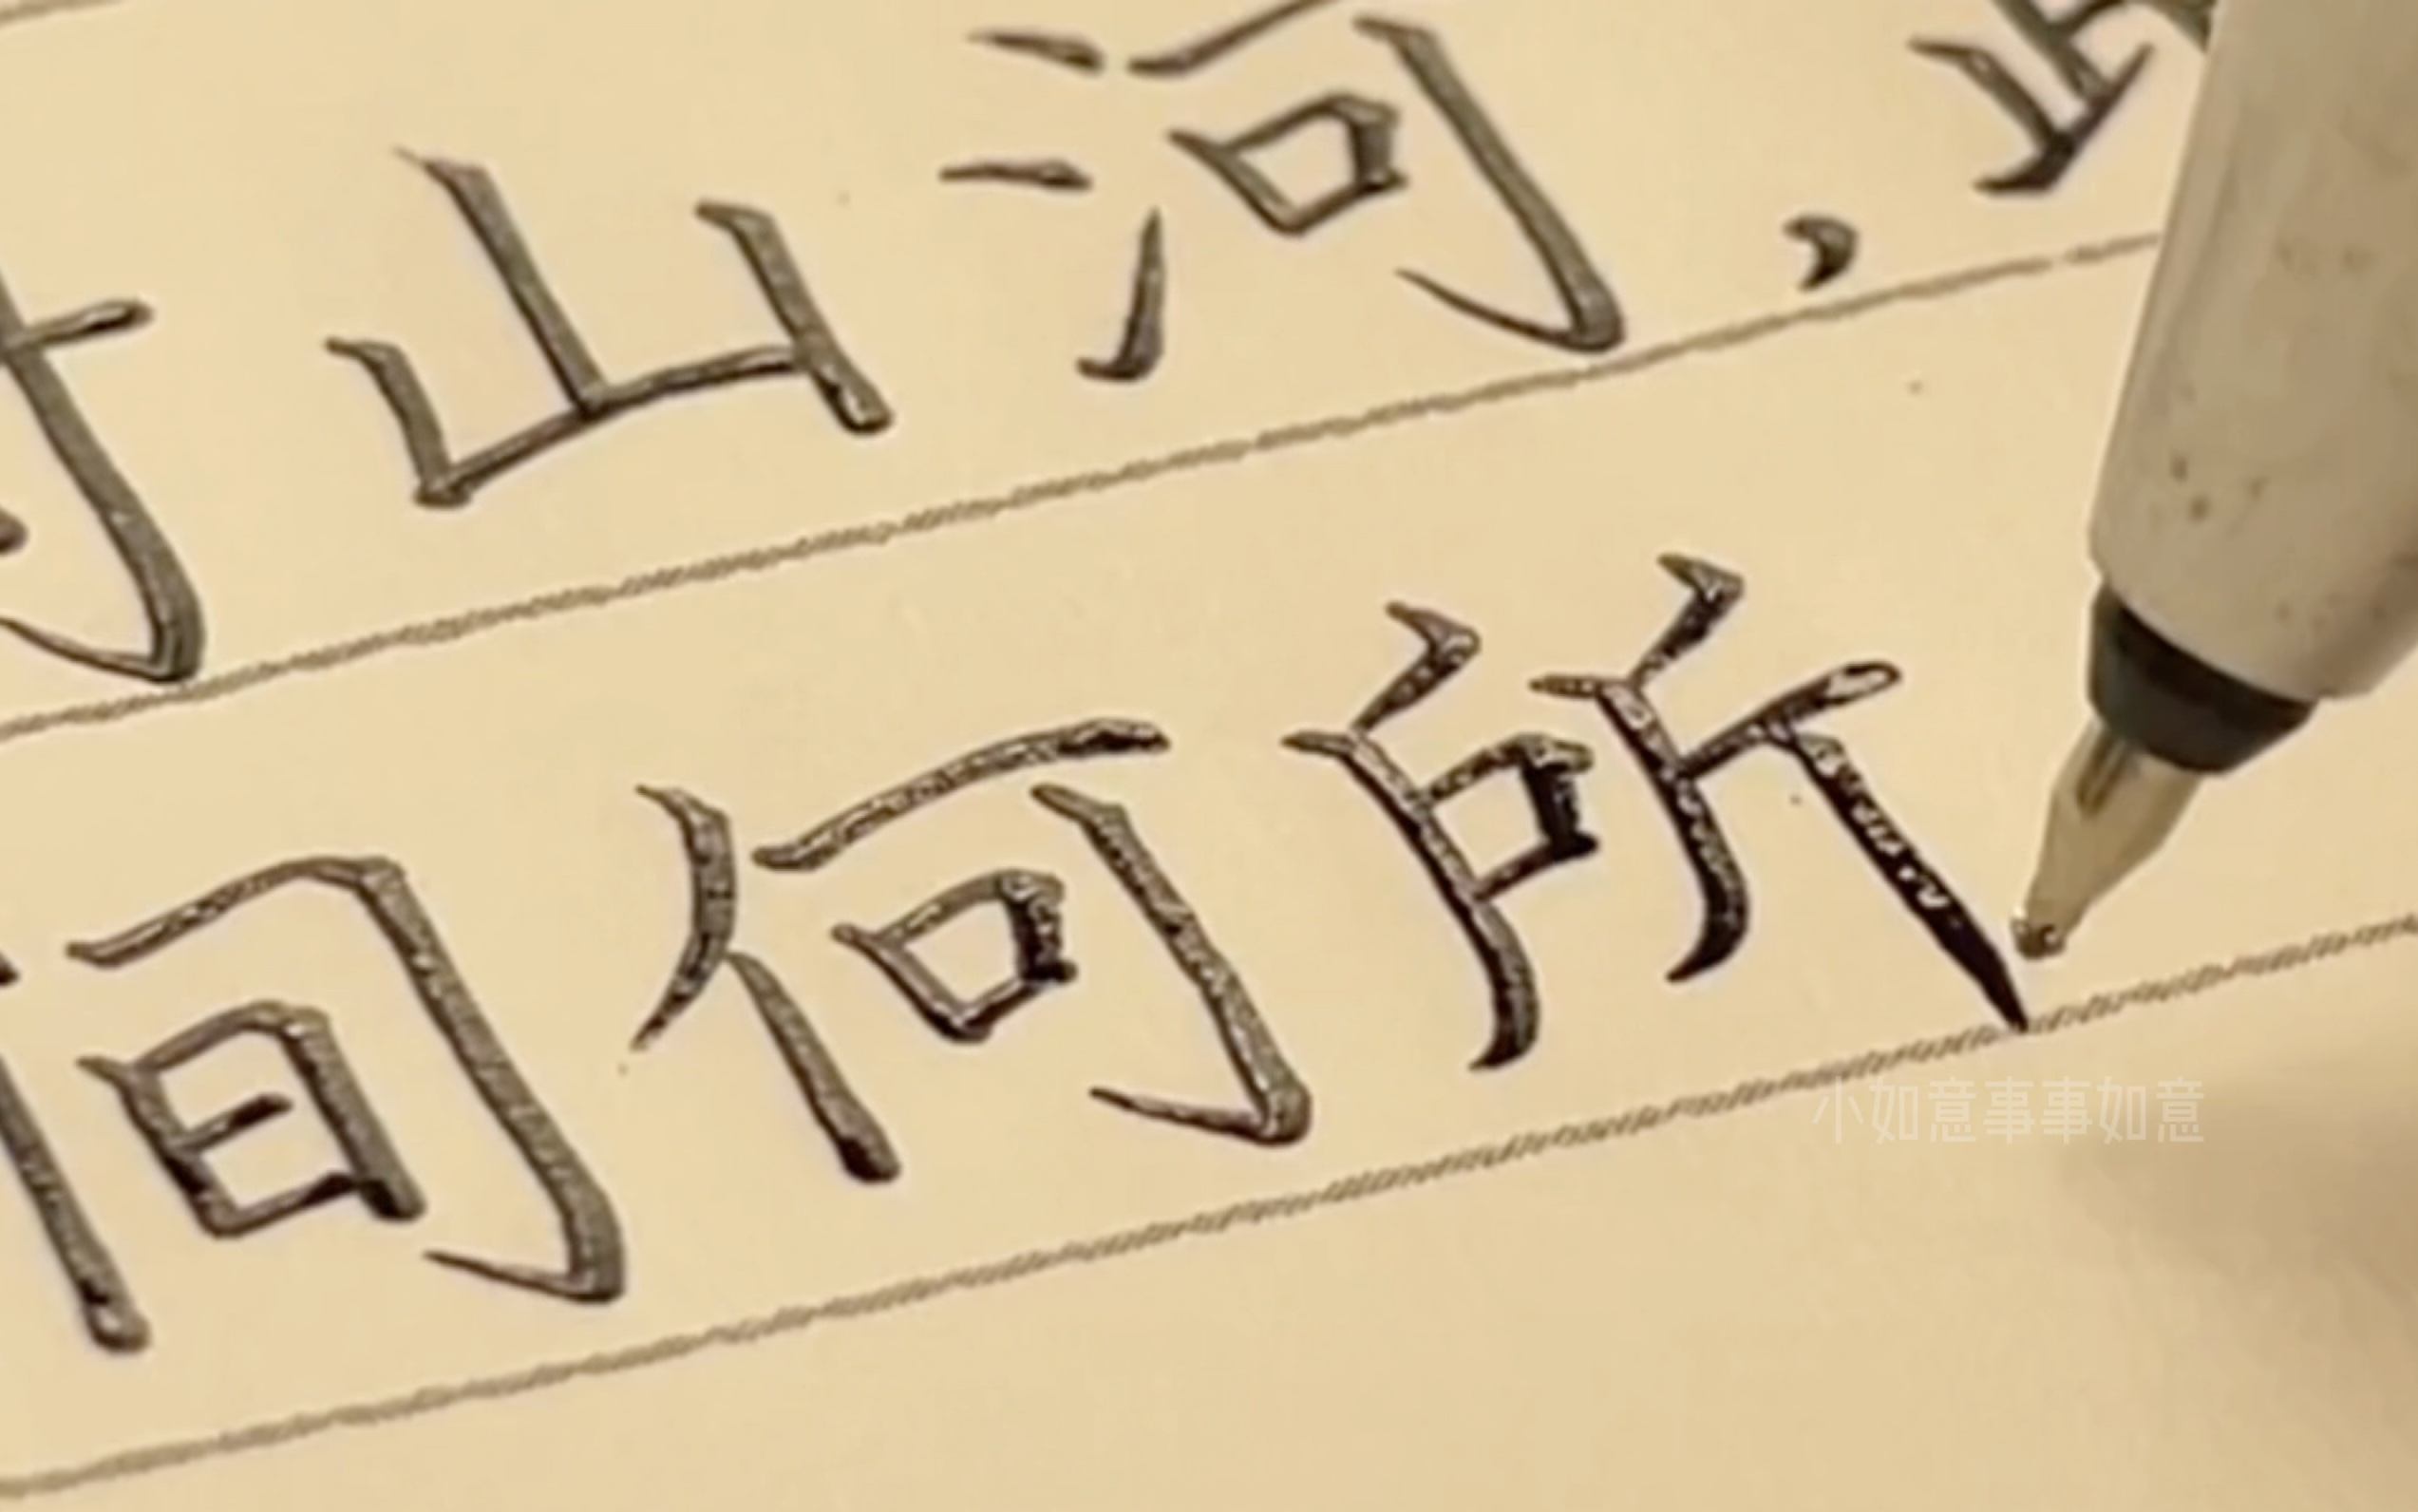 山河，
间何所
小如意事事如意